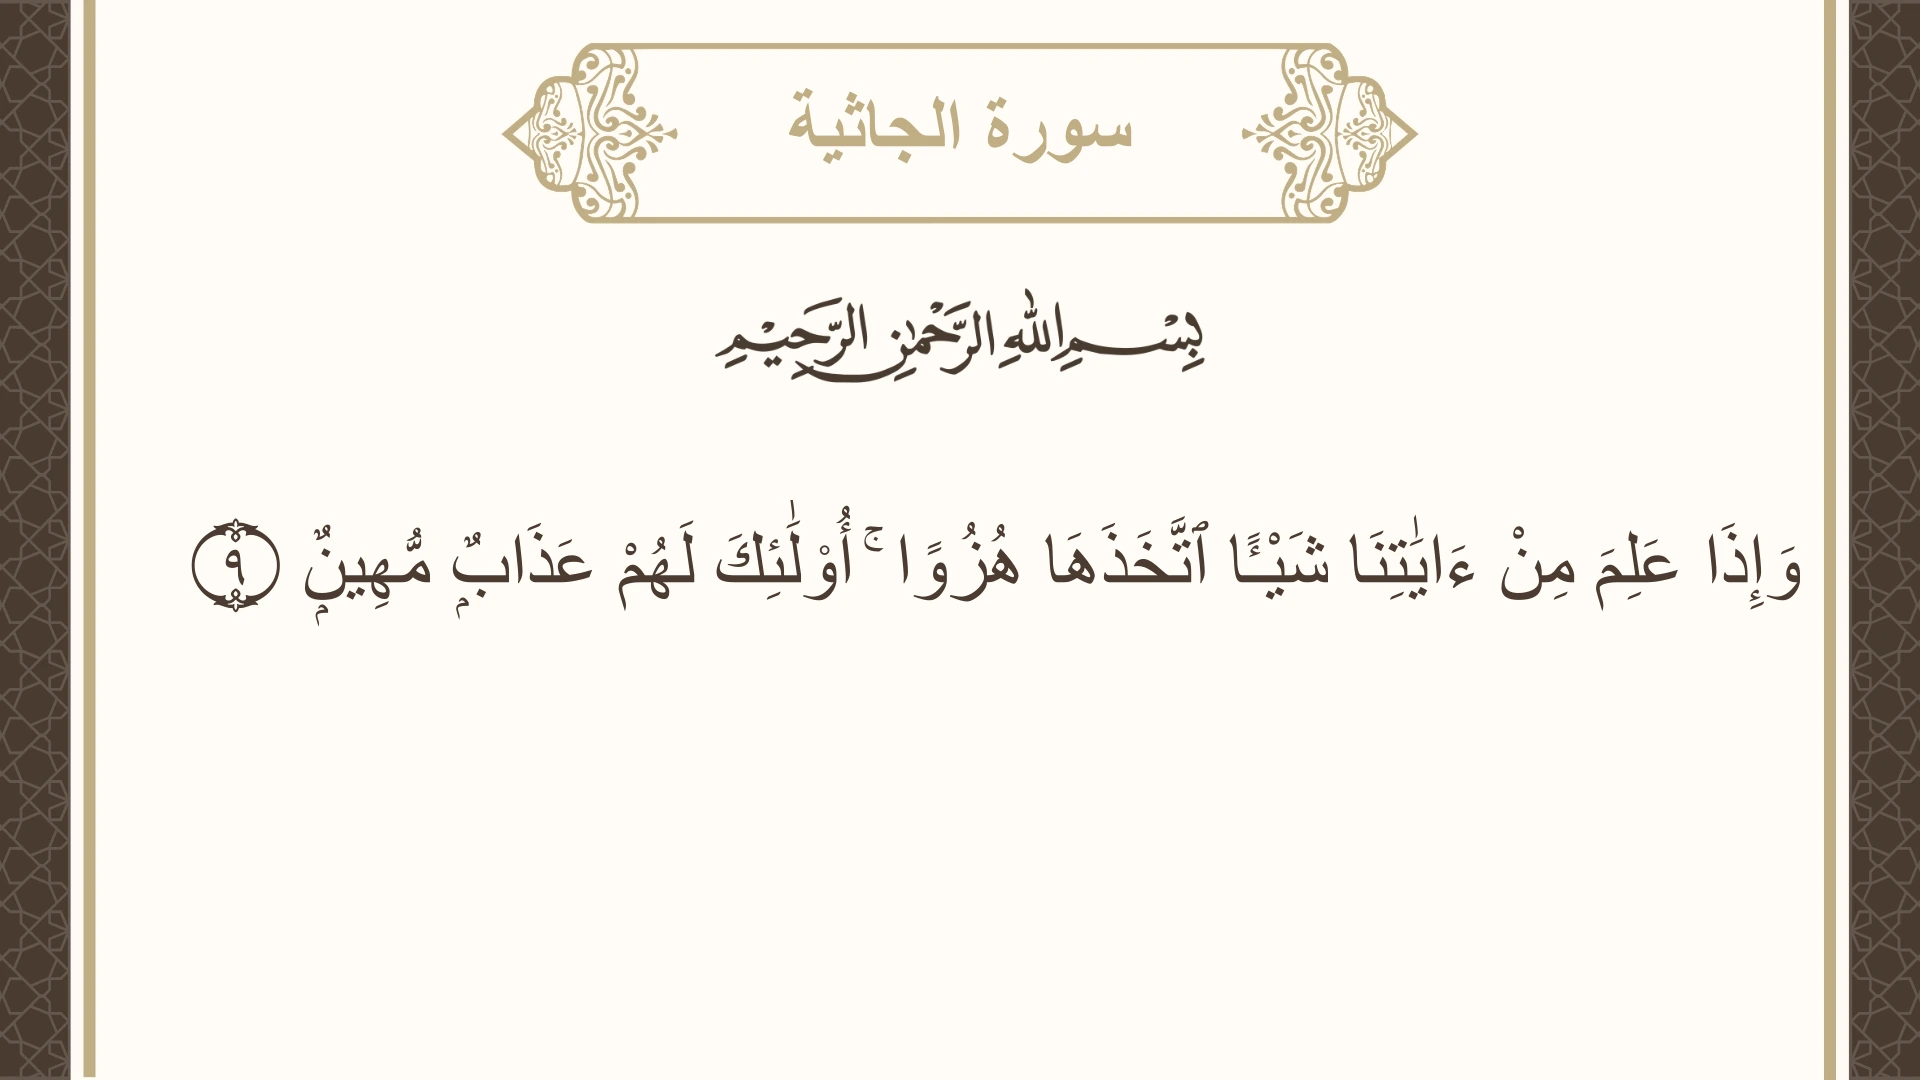 سورة الجاثية
بِسْمِ اللهِ الرَّحْمٰنِ الرَّحِيْمِ
وَإِذَا عَلِمَ مِنْ ءَايَٰتِنَا شَيْـًٔا ٱتَّخَذَهَا هُزُوًا ۚ أُوْلَٰٓئِكَ لَهُمْ عَذَابٌۭ مُّهِينٌۭ ٩